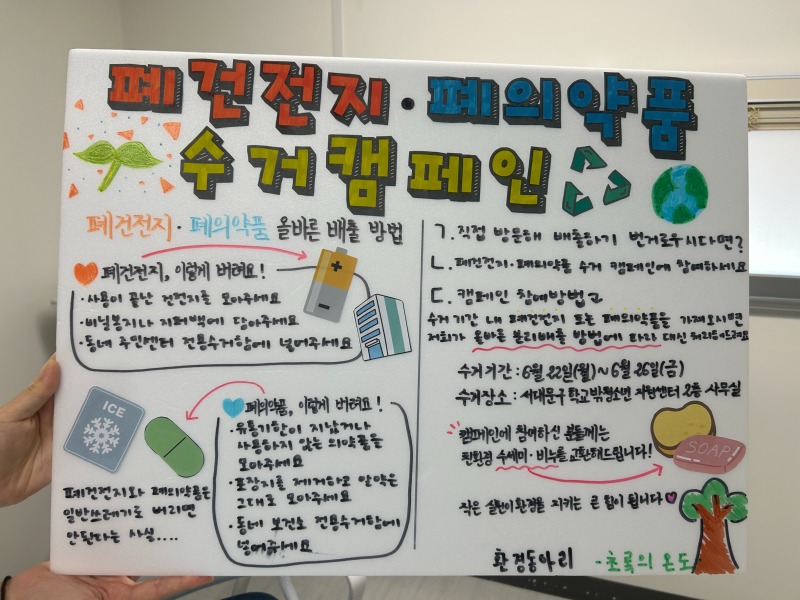 폐건전지·폐의약품
수거캠페인
폐건전지·폐의약품 올바른 배출 방법
폐건전지, 이렇게 버려요!
·사용이 끝난 건전지를 모아주세요
·비닐봉지나 지퍼백에 담아주세요
·동네 주민센터 전용수거함에 넣어주세요
ICE
폐의약품, 이렇게 버려요!
·유통기한이 지났거나
사용하지 않는 의약품을
모아주세요
·포장지를 제거하고 알약은
그대로 모아주세요
·동네 보건소 전용수거함에
넣어주세요
폐건전지와 폐의약품은
일반쓰레기로 버리면
안된다는 사실....
ㄱ.직접 방문해 배출하기 번거로우시다면?
ㄴ.폐건전지·폐의약품 수거 캠페인에 참여하세요
ㄷ.캠페인 참여방법
수거 기간 내 폐건전지 또는 폐의약품을 가져오시면
저희가 올바른 분리배출 방법에 따라 대신 처리해드려요
수거기간: 6월 22일(월)~6월 26일(금)
수거장소: 서대문구 학교밖청소년 지원센터 2층 사무실
캠페인에 참여하신 분들께는
친환경 수세미·비누를 교환해드립니다!
SOAP!
작은 실천이 환경을 지키는 큰 힘이 됩니다
환경동아리 -초록의 온도